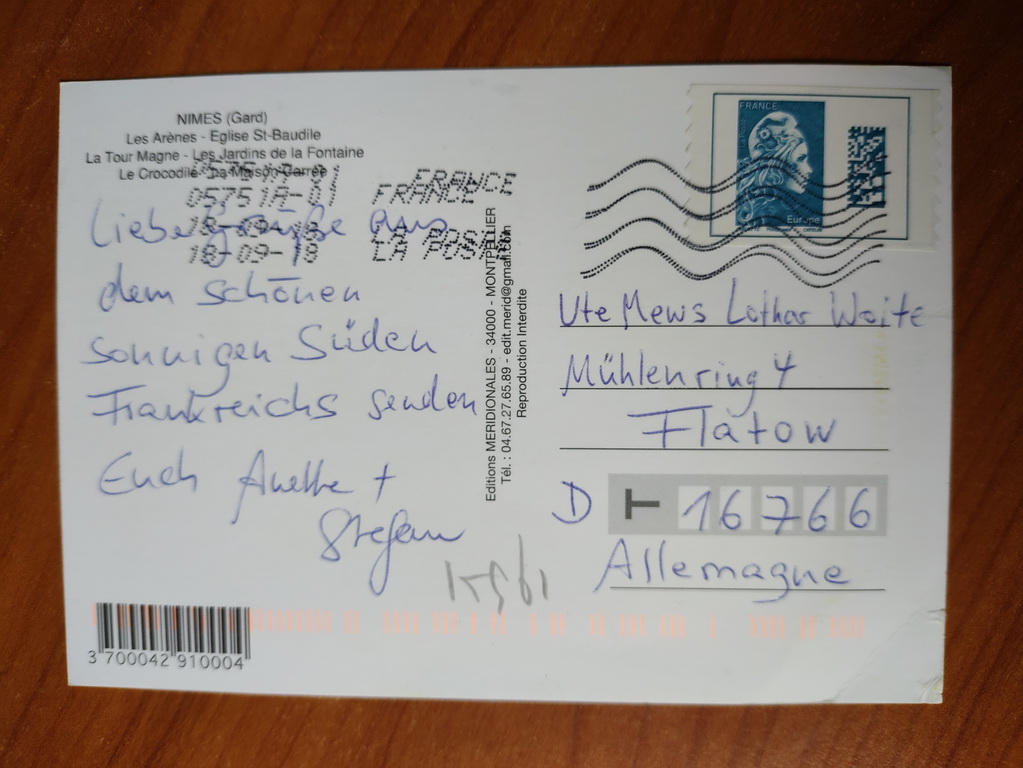 NIMES (Gard)
Les Arènes - Eglise St-Baudile
La Tour Magne - Les Jardins de la Fontaine
Le Crocodile - La Maison Carrée
05751A-01
FRANCE
05751A-01 FRANCE
18-09-18
18-09-18 LA POSTE
Liebe Grüße aus
dem schönen
sonnigen Süden
Frankreichs senden
Euch Anette +
Stefan
3 700042 910004
Editions MERIDIONALES - 34000 - MONTPELLIER
Tél. : 04.67.27.65.89 - edit.merid@gmail.com
Reproduction Interdite
FRANCE
Europe
Ute Mews Lothar Woite
Mühlenring 4
Flatow
D T 16766
Allemagne